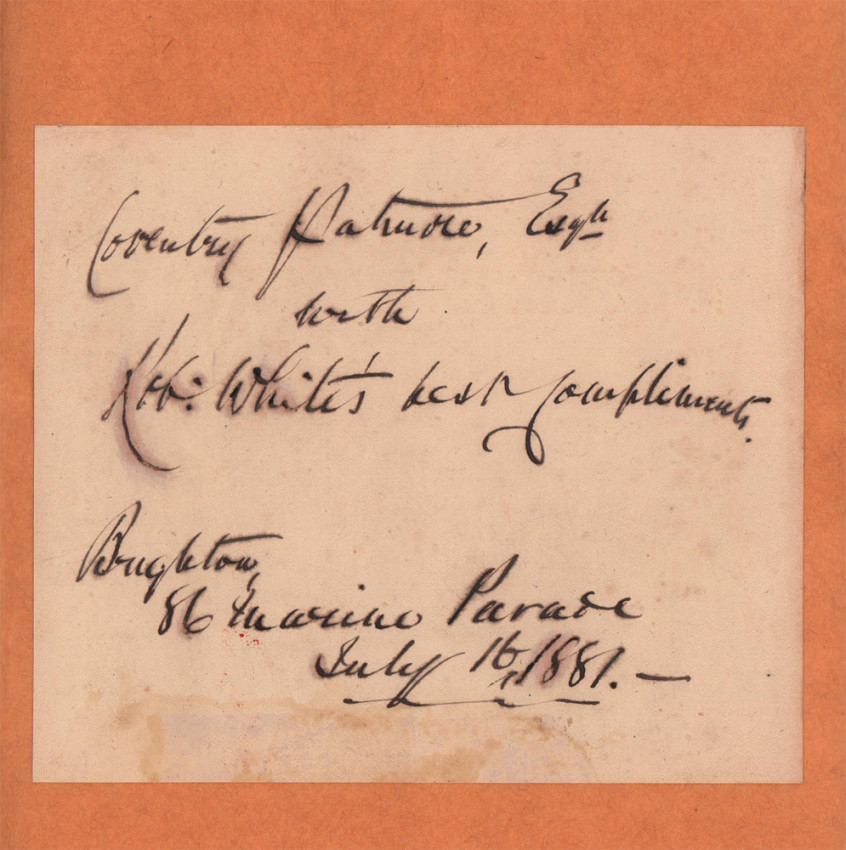 Coventry Patmore, Esqre
with
Rob: White's best compliments.
Brighton,
86 Marine Parade
July 16, 1881. —